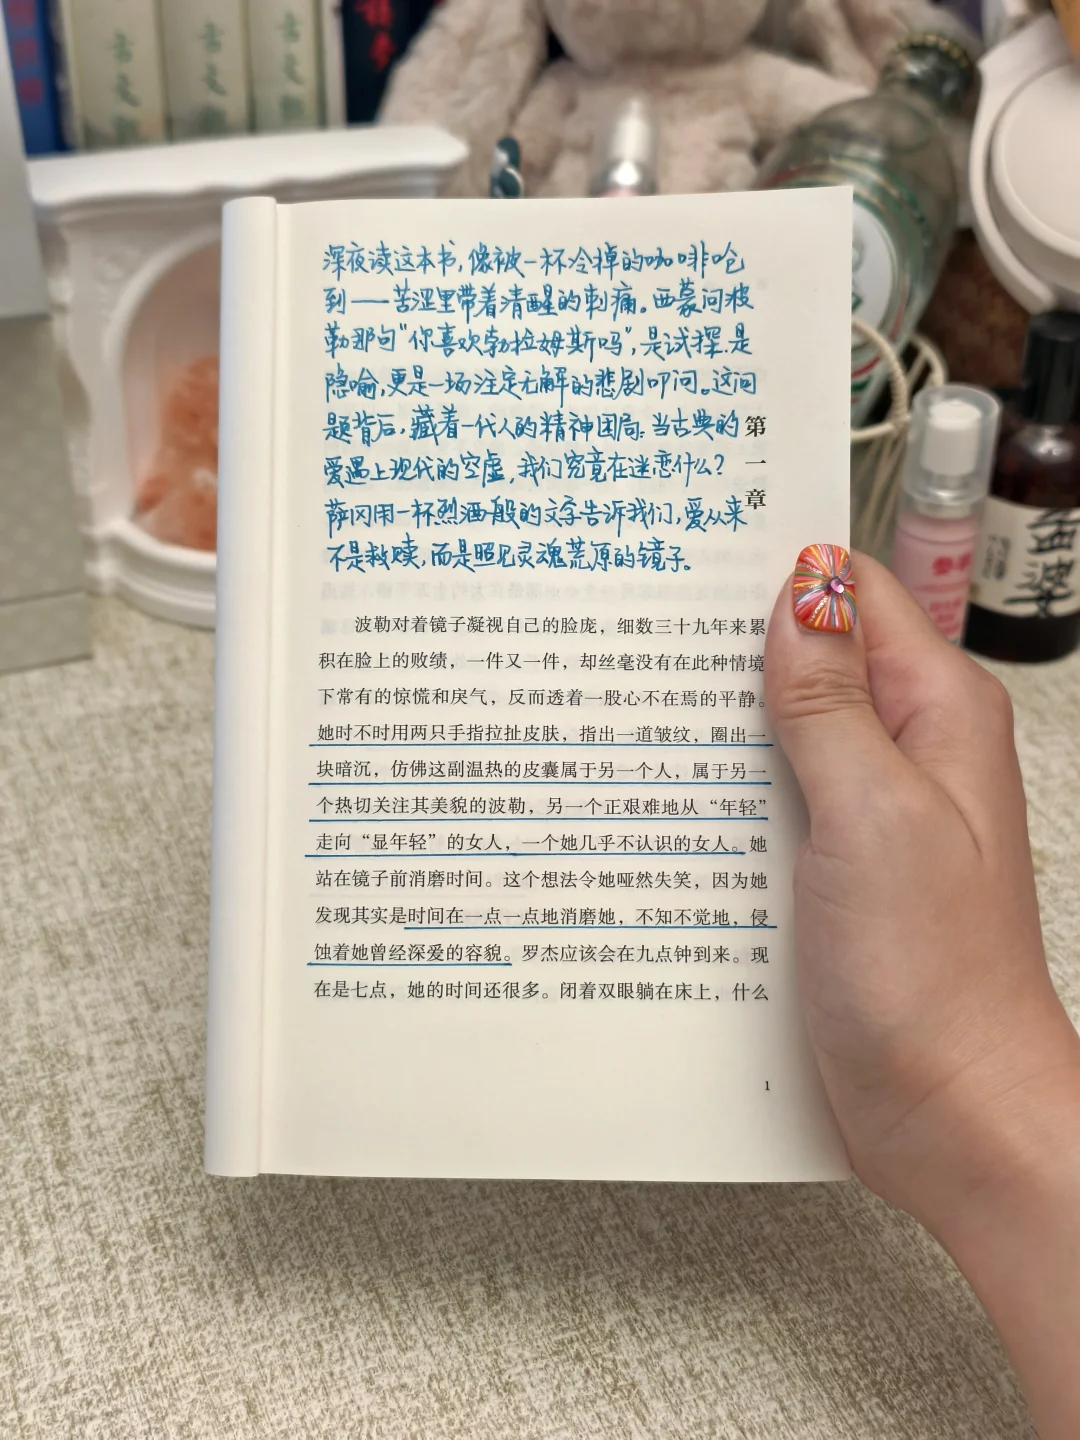 深夜读这本书,像被一杯冷掉的咖啡呛
到——苦涩里带着清醒的刺痛。西蒙问波
勒那句“你喜欢勃拉姆斯吗”,是试探.是
隐喻,更是一场注定无解的悲剧叩问。这问
题背后,藏着一代人的精神困局:当古典的
爱遇上现代的空虚,我们究竟在迷恋什么?
萨冈用一杯烈酒般的文字告诉我们,爱从来
不是救赎,而是照见灵魂荒原的镜子。
第一章
波勒对着镜子凝视自己的脸庞，细数三十九年来累
积在脸上的败绩，一件又一件，却丝毫没有在此种情境
下常有的惊慌和戾气，反而透着一股心不在焉的平静。
她时不时用两只手指拉扯皮肤，指出一道皱纹，圈出一
块暗沉，仿佛这副温热的皮囊属于另一个人，属于另一
个热切关注其美貌的波勒，另一个正艰难地从“年轻”
走向“显年轻”的女人，一个她几乎不认识的女人。她
站在镜子前消磨时间。这个想法令她哑然失笑，因为她
发现其实是时间在一点一点地消磨她，不知不觉地，侵
蚀着她曾经深爱的容貌。罗杰应该会在九点钟到来。现
在是七点，她的时间还很多。闭着双眼躺在床上，什么
1
孟婆